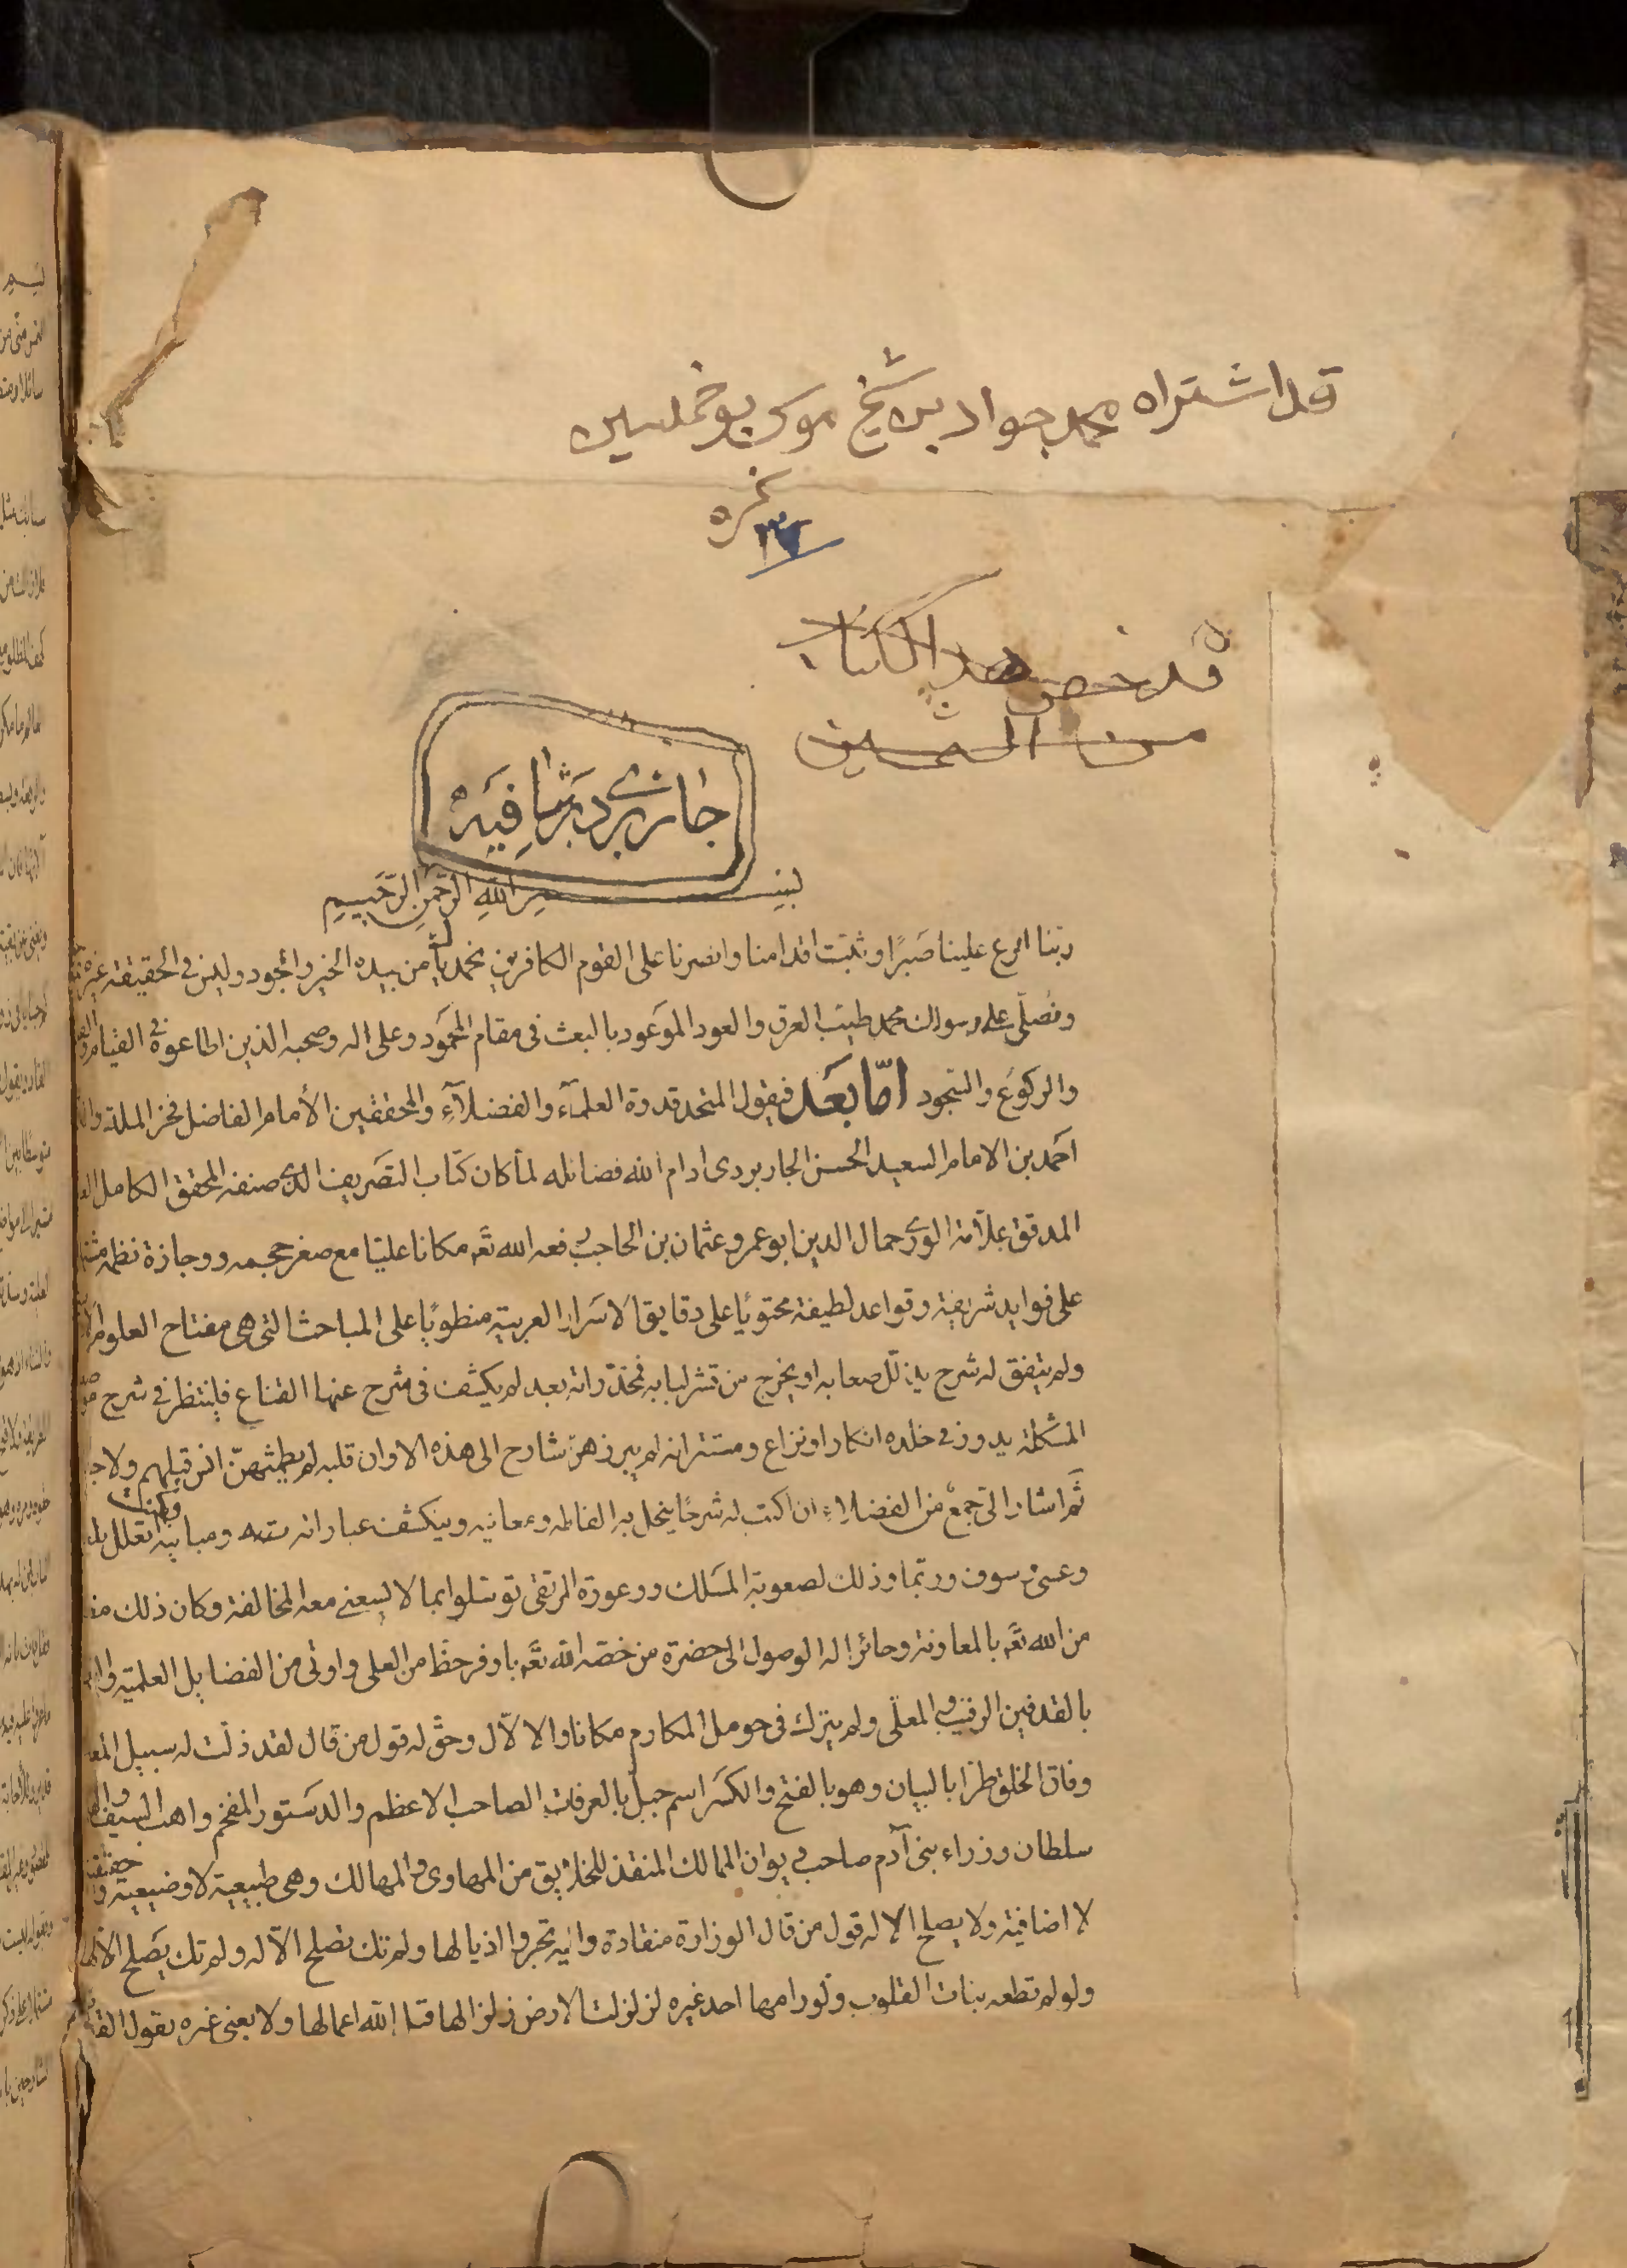 قد اشتراه محمد جواد بن شيخ موسى بوخمسين
نمره
قد خص هذا الكتاب
من الثمين
جاربردے بر شافيه
بسم الله الرحمن الرحيم
ربنا افرغ علينا صبرًا وثبت اقدامنا وانصرنا على القوم الكافرين نحمدك يا من بيده الخير والجود وليس في الحقيقة غيره
ونصلى على رسولك محمد طيب العرق والعود الموعود بالبعث في مقام المحمود وعلى اله وصحبه الذين اطاعوه في القيام
والركوع والسجود امّا بعد فيقول المتحد قدوة العلمآء والفضلآء والمحققين الأمام الفاضل فخر الملة
احمد بن الامام السعيد الحسن الجاربردى ادام الله فضائله لما كان كتاب التصريف الذى صنفه المحقق الكامل
المدقق علّامة الورى جمال الدين ابو عمرو عثمان بن الحاجب رفعه الله تعٓ مكانا عليّا مع صغر حجمه ووجازة نظمه
على فوايد شريفة وقواعد لطيفة محتويًا على دقايق الاسرار العربية منطويًا على المباحث التى هى مفتاح العلوم
ولم يتفق له شرح يذلّل صعابه او يخرج من قشر لبابه فمخدّراته بعد لم يكشف فى شرح عنها القناع فلينتظر فى شرح
المشكلة يدور فى خلده انكار او نزاع ومستترانه لم يبرزهن شارح الى هذه الاوان قلبه لم يطمثهنّ انس قبلهم ولا
ثم اشار الىّ جمع من الفضلاء ان اكتب له شرحًا ينحل به الفاظه ومعانيه وينكشف عباراته ومبانيه وكنت اتعلل
وعسى سوف وربّما وذلك لصعوبة المسلك ووعورة المرتقى توسّلوا بما لا يسعنى معه المخالفة وكان ذلك
من الله تعٓ بالمعاونة وحائزا له الوصول الى حضرة من خصّه الله تعٓ باوفر حظ من العلى واوتى من الفضايل العلمية
بالقدفين الرقيب والمعلّى ولم يترك فى حومل المكارم مكانا والا لآل وحقّ له قول من قال لقد ذلّت له سبيل
وفاق الخلق طرّا بالبيان وهو بالفتح والكسر اسم جبل بالعرفات الصاحب الاعظم والدستور المفخم واهب السيف
سلطان وزراء بنى آدم صاحب ديوان الممالك المنقذ للخلايق من المهاوى والمهالك وهى طبيعية لا وضيعية
لا اضافية ولا يصلح الا له قول من قال الوزارة منقادة واليه تجرّر اذيالها ولم تك تصلح الّا له ولم تك يصلح الّا
ولو لم تطعه بنات القلوب ولو رامها احد غيره لزلزلت الارض زلزالها الله اعمالها ولا يعنى غيره بقول